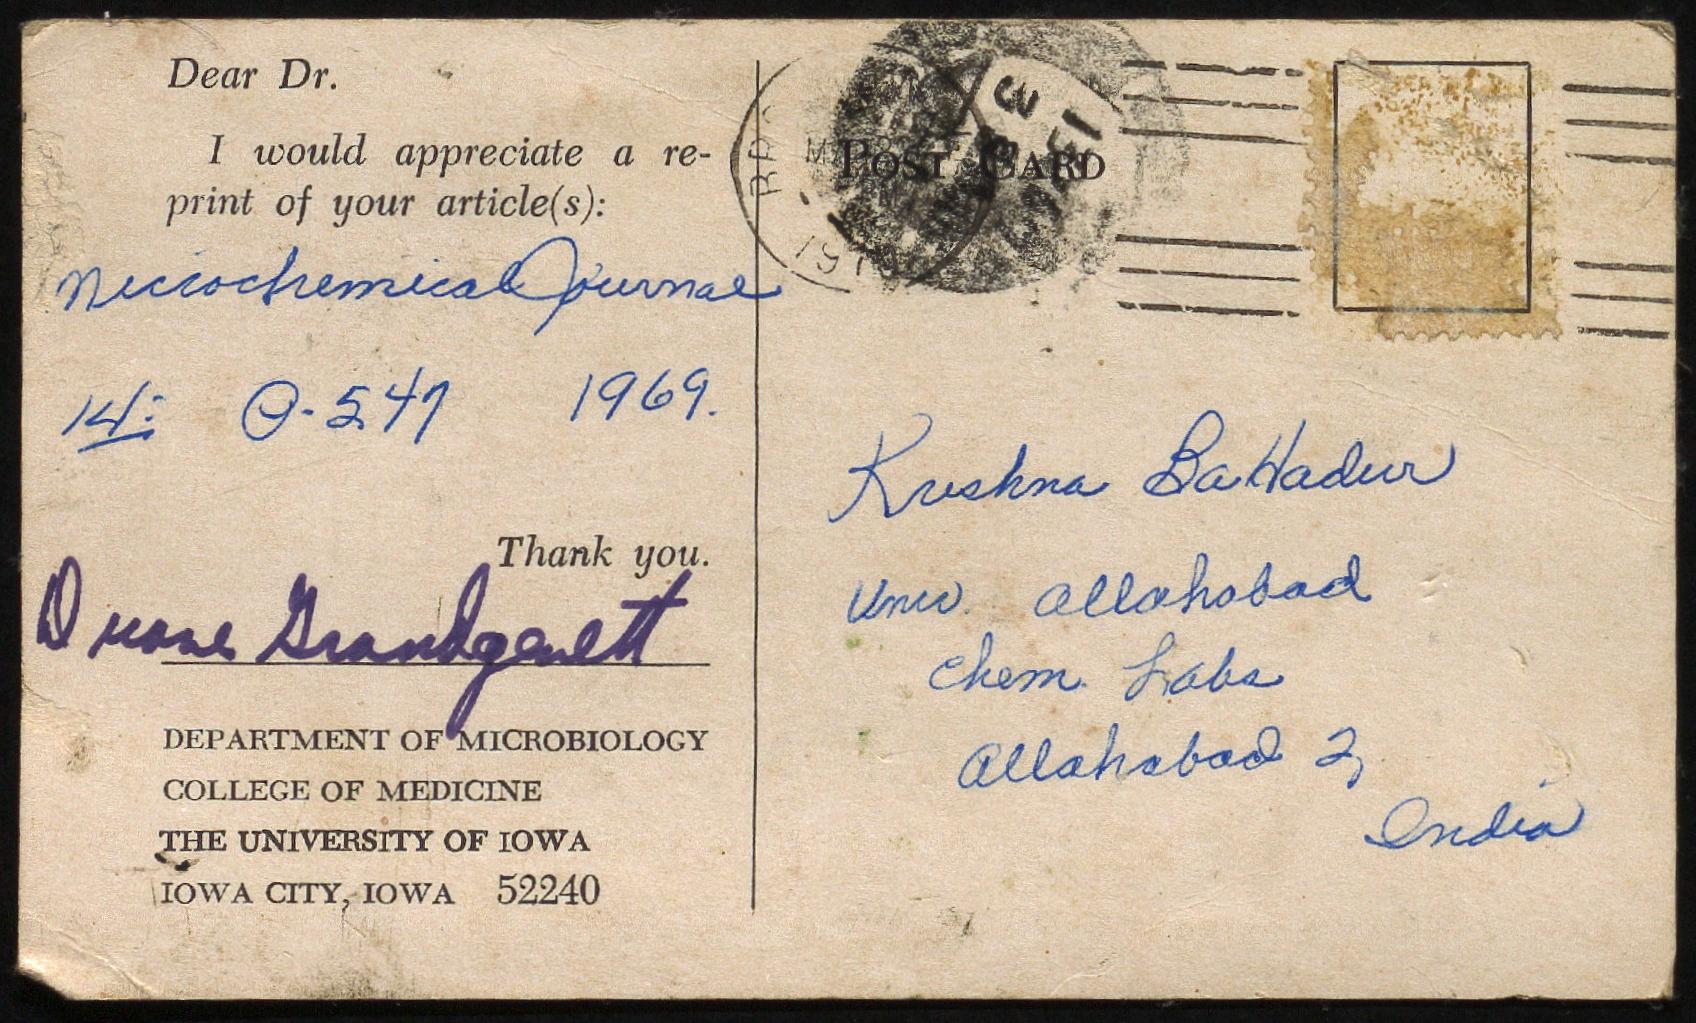 Dear Dr.
I would appreciate a re-
print of your article(s):
Microchemical Journal
14: P-547 1969.
Thank you.
Duane Grandgenett
DEPARTMENT OF MICROBIOLOGY
COLLEGE OF MEDICINE
THE UNIVERSITY OF IOWA
IOWA CITY, IOWA 52240
POST CARD
Krishna BaHadur
Univ. Allahabad
Chem. Labs
Allahabad 2,
India